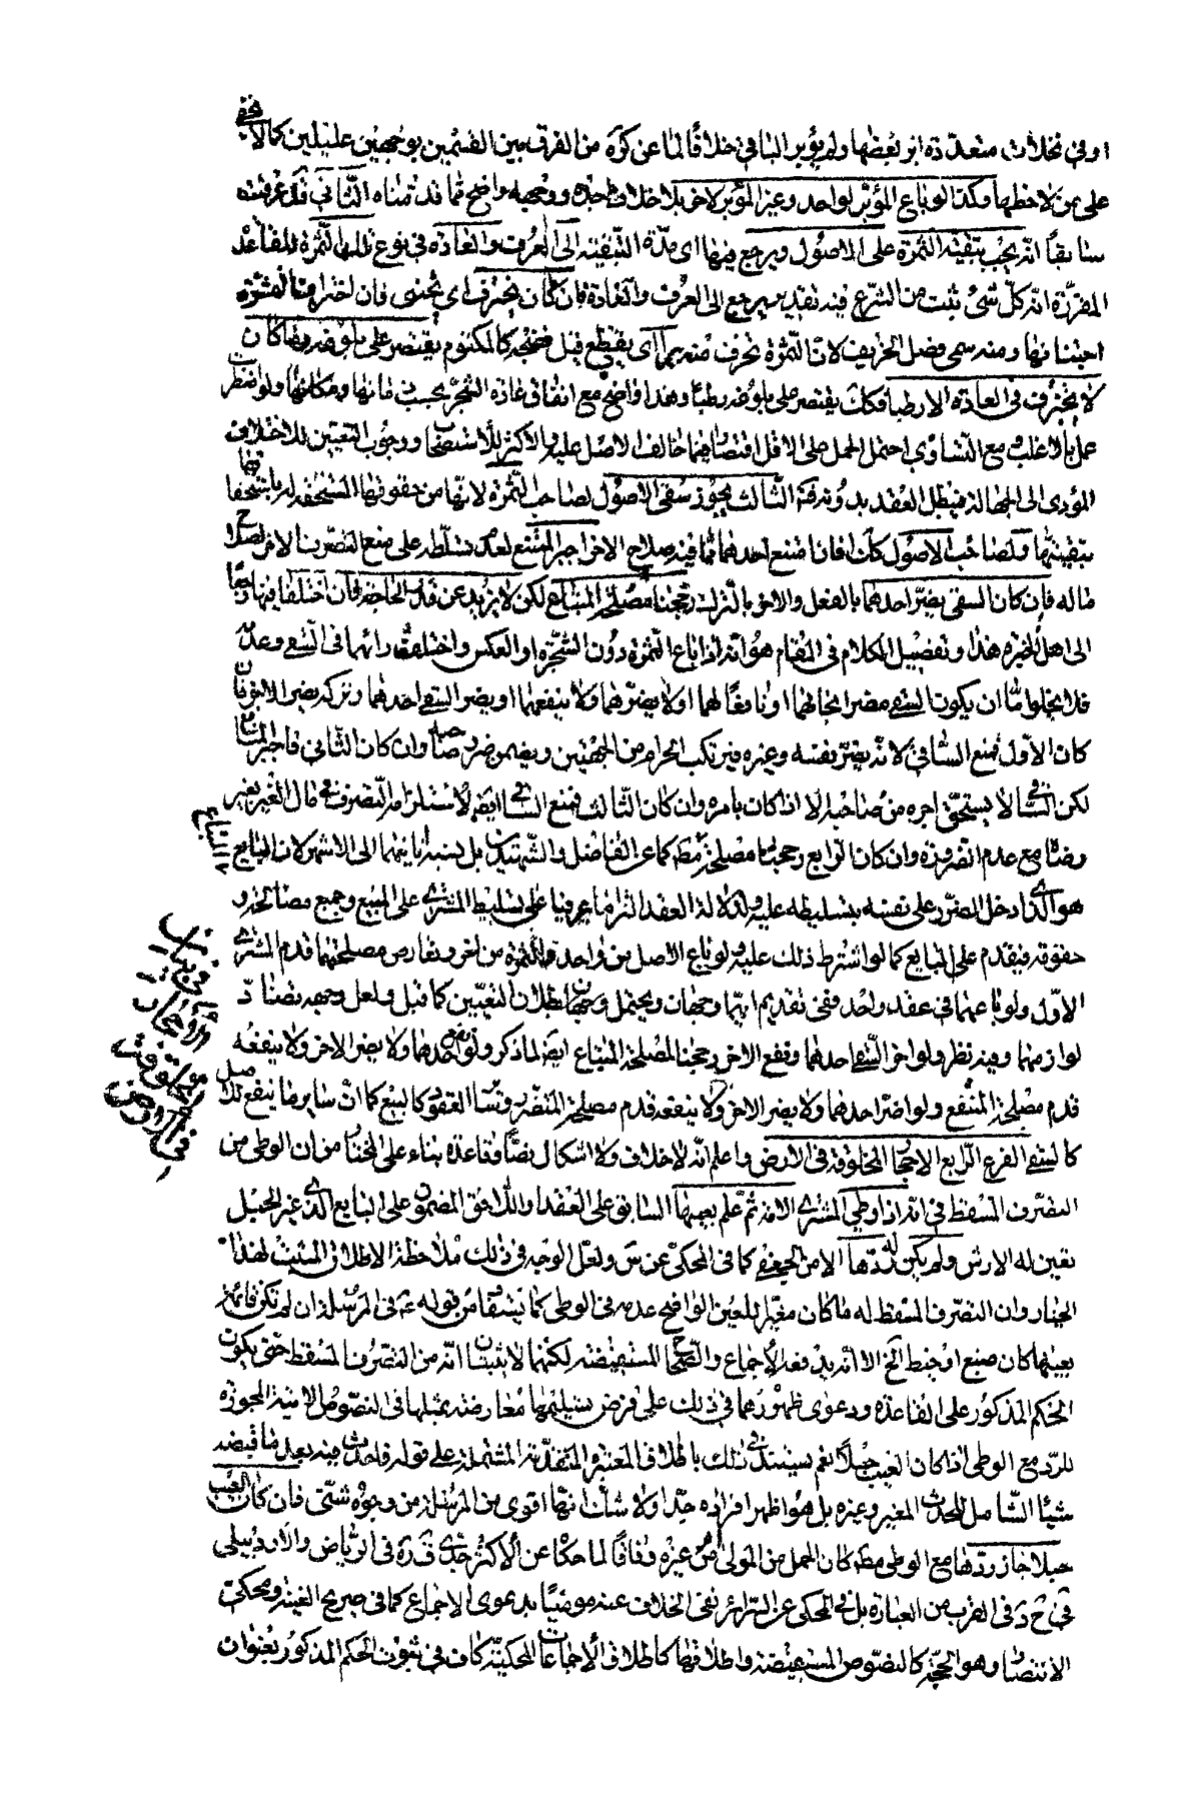 او في نخلات متعددة ابر بعضها ولم يؤبر الباقي خلافا لما عن كره من الفرق بين القسمين بوجهين عليلين كما لا يخفى
على من لاحظها وكذا لو باع المؤبر لواحد وغير المؤبر لاخر بلا خلاف اجده ووجهه واضح مما قدمناه الثاني قد عرفت
سابقا انه يجب تبقية الثمرة على الاصول ويرجع فيها اى مدة التبقية الى العرف والعادة في نوع تلك الثمرة للقاعدة
المقررة انه كل شئ يثبت من الشرع فيه تقدير يرجع الى العرف والعادة فان كان يخترف اى يجتنى فان اختراف الثمرة
اجتنائها ومنه سمى فصل الخريف لان الثمرة تخرف منه بسرا اى يقطع قبل نضجه كالمكتوم يقتصر على بلوغه وما كان
لا يخترف في العادة الا رطبا فكك يقتصر على بلوغه رطبا وهذا واضح مع اتفاق عادة الشجر بحسب زمانها ومكانها ولو اضطرب
عمل بالاغلب مع التساوي احتمل الحمل على الاقل اقتصارا فيما خالف الاصل عليه والاكثر للاستصحاب ووجوب التعيين للاختلاف
المؤدى الى الجهالة فيبطل العقد بدونه الثالث يجوز سقى الاصول لصاحب الثمرة لانها من حقوقها المستحقة له باستحقاق
تبقيتها ولصاحب الاصول كك فان امتنع احدهما مما فيه صلاح الاخر اجبر الممتنع لعدم تسلطه على منع التصرف الاخر لصلاح
ماله فان كان السقي يضر احدهما بالفعل والاخر بالترك رجحنا مصلحة المبتاع لكن لا يزيد عن قدر الحاجة فان اختلفا فيها رجعا
الى اهل الخبرة هذا وتفصيل الكلام في المقام هو انه اذا باع الثمرة دون الشجرة او العكس واختلف رائهما في السقى وعدمه
فلا يخلو اما ان يكون السقي مضرا بحالهما او نافعا لهما او لا يضرهما ولا ينفعهما او يضر السقي احدهما وتركه يضر الاخر فان
كان الاول منع الساقي لانه يضر بنفسه وغيره فيرتكب الحرام من الجهتين ويضمن ضرر صاحبه وان كان الثاني فاجبر الممتنع
لكن الساقي لا يستحق اجره من صاحبه الا اذا كان بامره وان كان الثالث فمنع الساقي ايضا لاستلزامه التصرف في مال الغير بغير
رضاه مع عدم الضرورة وان كان الرابع رجحنا مصلحة المبتاع مط كما عن الفاضل والشهيدين بل نسبه ثانيهما الى الاشهر لان البايع
هو الذى ادخل الضرر على نفسه بتسليطه عليه ولدلالة العقد التزاما عرفيا على تسليط المشترى على المبيع وجميع مصالحه و
حقوقه فيقدم على البايع كما لو اشترط ذلك عليه ولو باع الاصل من واحد والثمرة من اخر وتعارض مصلحتهما قدم المشترى
الاول ولو باعهما في عقد واحد ففي تقديم ايهما وجهان ويحتمل وجها بطلان التعيين كما قيل ولعل وجهه تضاد
لوازمهما وفيه نظر ولو اخر السقي احدهما ونفع الاخر رجحنا لمصلحة المبتاع ايضا لما ذكر ولو نفع احدهما ولا يضر الاخر ولا ينفعه
قدم مصلحة المنتفع ولو اضر احدهما ولا يضر الاخر ولا ينفعه قدم مصلحة المتضرر وساير العقود كالبيع كما ان ساير ما ينفع للاصل
كالسقي الفرع الرابع الاحجار المخلوقة في الارض واعلم انه لا خلاف ولا اشكال نصا وقاعدة بناء على المختار من ان الوطى من
التصرف المسقط في انه اذا وطى المشترى الامة ثم علم بعيبها السابق على العقد او اللاحق المضمون على البايع الذى غير الحبل
تعين له الارش ولم يكن له ردها الا من الجعفي كما في المحكي عن س ولعل الوجه في ذلك ملاحظة الاطلاق المثبت لهذا
الخيار وان التصرف المسقط له ما كان مغيرا للعين الواضح عدمه في الوطى كما يستفاد من قوله ع في المرسلة ان لم تكن قائمة
بعينها كان صبغ او خيط الخ الا انه يدفعه الاجماع والصحاح المستفيضة لكنهما لا يثبتان انه من التصرف المسقط حتى يكون
الحكم المذكور على القاعدة ودعوى ظهورهما في ذلك على فرض تسليمها معارضة بمثلها في النصوص الاتية المجوزة
للرد مع الوطى اذا كان العيب حبلا نعم يستند في ذلك باطلاق المعتبرة المتقدمة المشتملة على قوله فاحدث فيه بعد ما قبضه
شيئا الشامل للحدث المغير وغيره بل هو اظهر افراده جدا ولا شك انها اقوى من المرسلة من وجوه شتى فان كان العيب
حبلا جاز ردها مع الوطى مط كان الحمل من المولى ام من غيره وفاقا لما حكاه عن الاكثر جدى قدس في الرياض والاردبيلي
في شرح د في القرب من العبارة بل في المحكي عن السرائر نفى الخلاف عنه مومئيا بدعوى الاجماع كما في صريح الغنية ومحكي
الانتصار وهو الحجة كالنصوص المستفيضة واطلاقها كاطلاق الاجماعات المحكية كاف في ثبوت الحكم المذكور بعنوان
المبتاع
في بيان
الاحجار
المخلوقة
في الارض